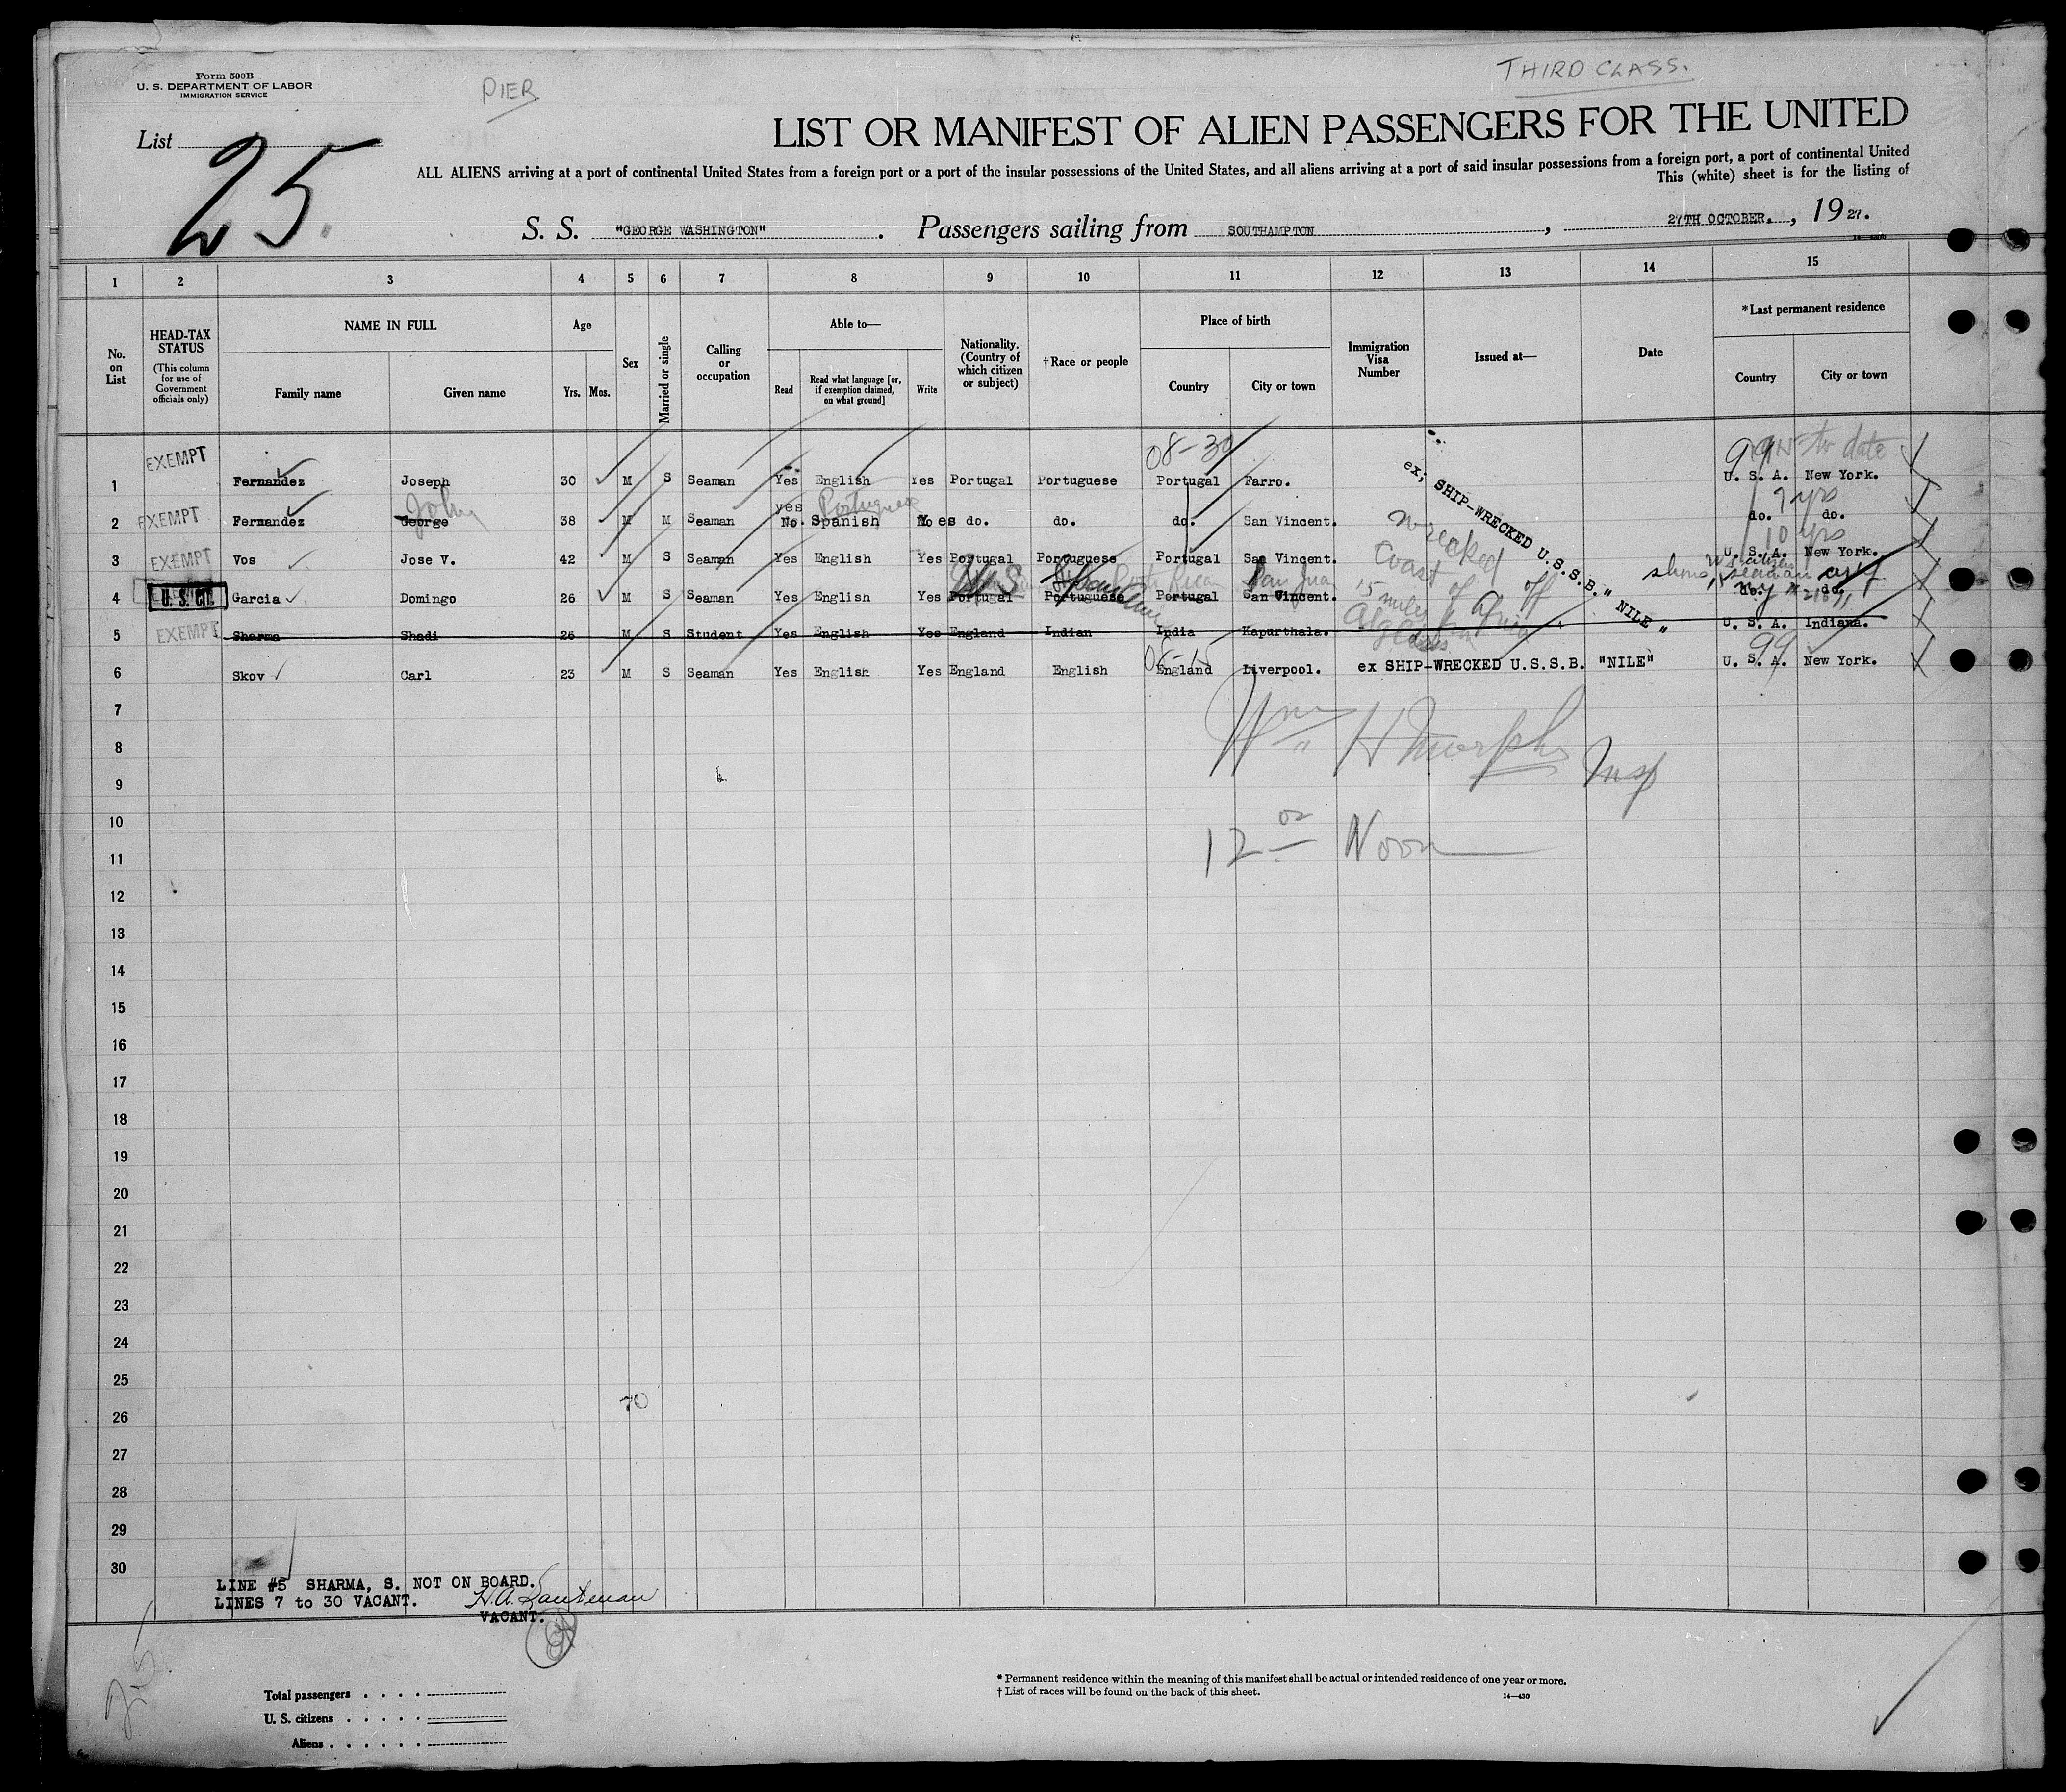 Form 500B
U. S. DEPARTMENT OF LABOR
IMMIGRATION SERVICE
PIER
THIRD CLASS.
List 25.
LIST OR MANIFEST OF ALIEN PASSENGERS FOR THE UNITED
ALL ALIENS arriving at a port of continental United States from a foreign port or a port of the insular possessions of the United States, and all aliens arriving at a port of said insular possessions from a foreign port, a port of continental United
This (white) sheet is for the listing of
S. S. "GEORGE WASHINGTON". Passengers sailing from SOUTHAMPTON, 27TH OCTOBER., 1927.
1 2 3 4 5 6 7 8 9 10 11 12 13 14 15
No. on List
HEAD-TAX STATUS
(This column for use of Government officials only)
NAME IN FULL
Family name
Given name
Age
Yrs. Mos.
Sex
Married or single
Calling or occupation
Able to—
Read
Read what language [or, if exemption claimed, on what ground]
Write
Nationality. (Country of which citizen or subject)
†Race or people
Place of birth
Country
City or town
Immigration Visa Number
Issued at—
Date
*Last permanent residence
Country
City or town
08-30
99 to date
1 EXEMPT Fernandez Joseph 30 M S Seaman Yes English Yes Portugal Portuguese Portugal Farro. U. S. A. New York.
John yes Portuguese 7 yrs
2 EXEMPT Fernandez George 38 M M Seaman No. Spanish do. do. do. San Vincent. do. do.
10 yrs
3 EXEMPT Vos Jose V. 42 M S Seaman Yes English Yes Portugal Portuguese Portugal San Vincent. U. S. A. New York.
U S San Juan
4 U. S. CIT. Garcia Domingo 26 M S Seaman Yes English Yes Portugal Portuguese Portugal San Vincent. do. do.
5 EXEMPT Sharma Shadi 26 M S Student Yes English Yes England Indian India Kapurthala. U. S. A. Indiana.
99
6 Skov Carl 23 M S Seaman Yes English Yes England English England Liverpool. ex SHIP-WRECKED U.S.S.B. "NILE" U. S. A. New York.
ex; SHIP-WRECKED U.S.S.B. " NILE "
wrecked off
Coast of Africa
15 miles from
7
Wm H Murphy Insp
8
9
10
12 00 Noon
11
12
13
14
15
16
17
18
19
20
21
22
23
24
25
70
26
27
28
29
30
LINE #5 SHARMA, S. NOT ON BOARD.
LINES 7 to 30 VACANT.
VACANT.
Total passengers
U. S. citizens
Aliens
* Permanent residence within the meaning of this manifest shall be actual or intended residence of one year or more.
† List of races will be found on the back of this sheet.
14—430